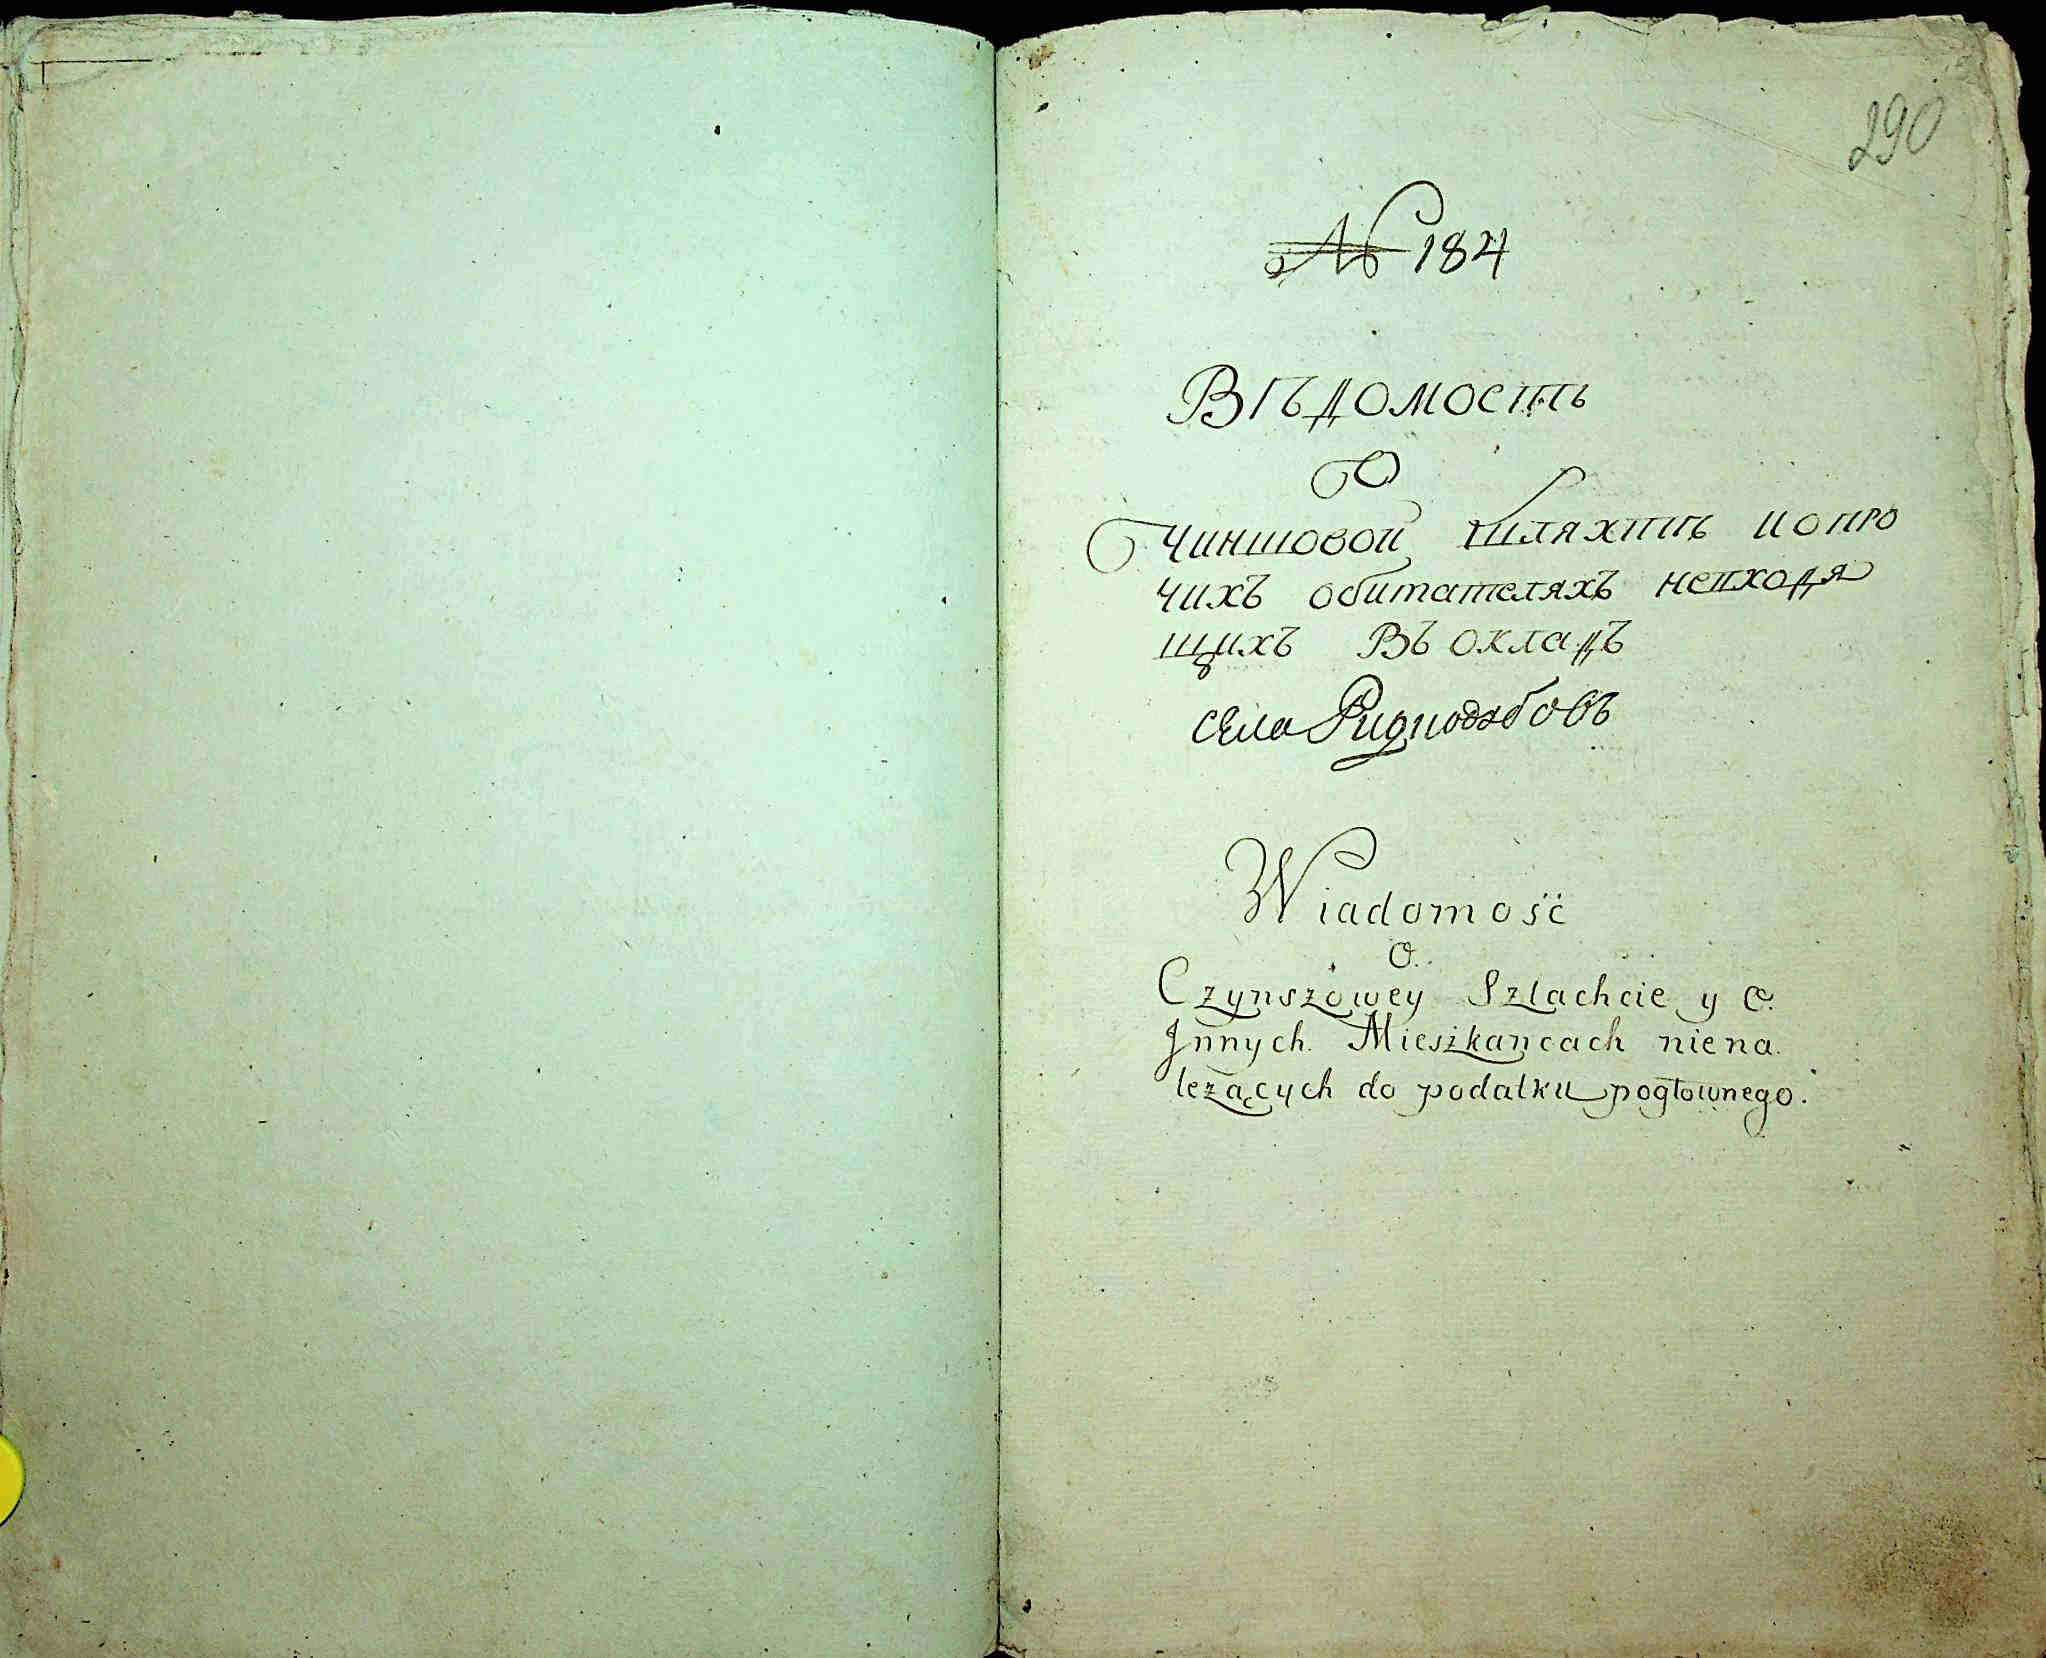 290
№ 184
Вѣдомость
О
Чиншовой шляхтѣ и о про
чихъ обитателяхъ невходя
щихъ Въ окладъ
села
Wiadomość
O.
Czynszowey Szlachcie y O.
Jnnych Mieszkancach niena
leżących do podatku pogłownego.